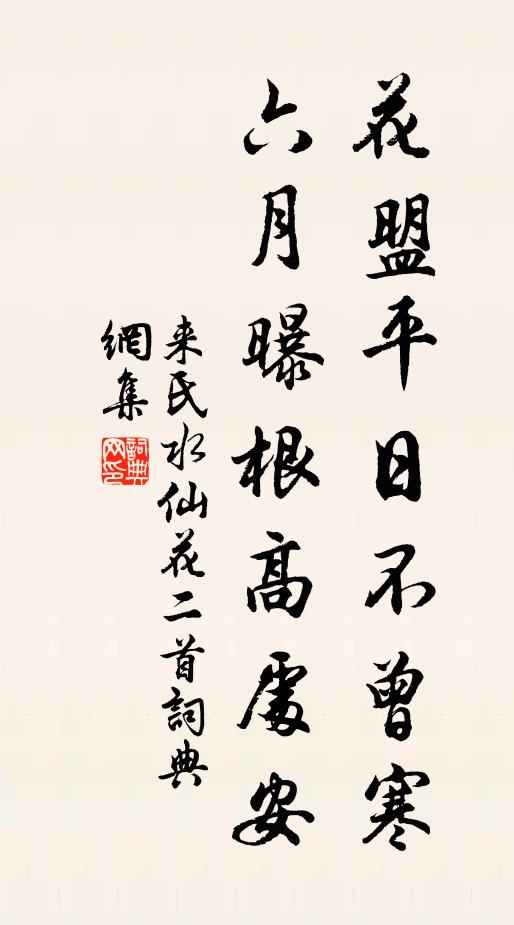 花盟平日不曾寒
六月曝根高處安
来氏水仙花二首詞典
網集
詞典網印